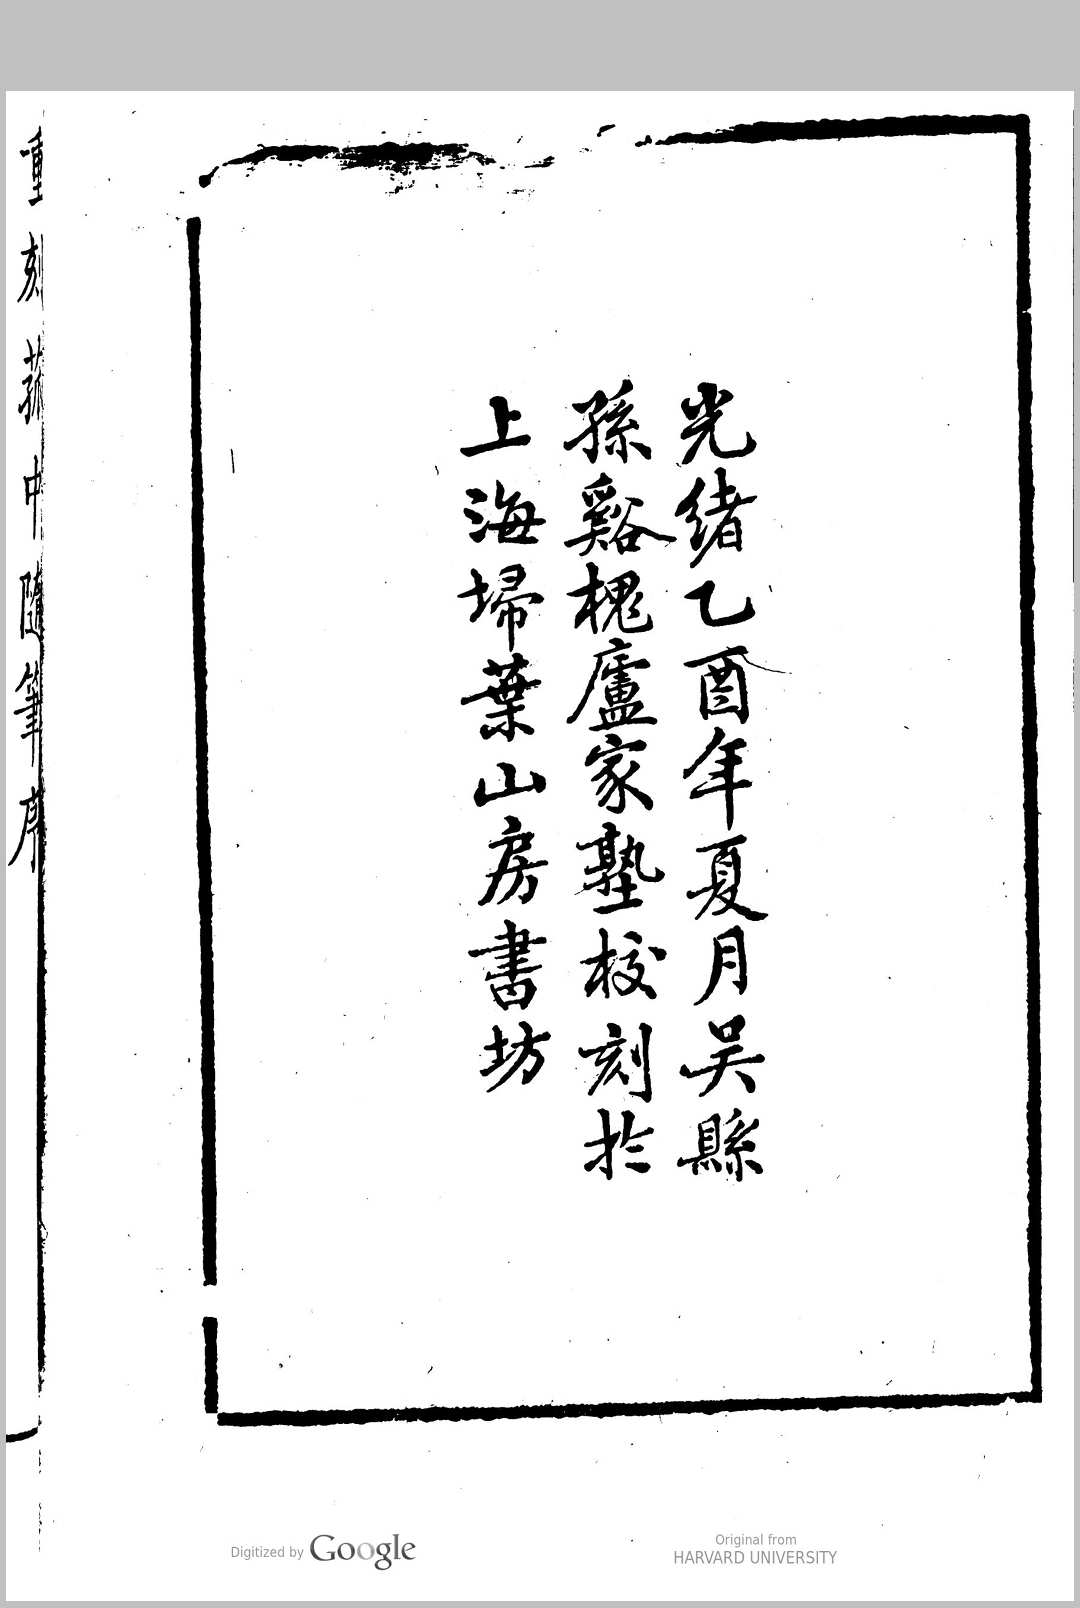 光緒乙酉年夏月吴縣
孫谿槐廬家塾校刻於
上海埽葉山房書坊
重刻菰中隨筆序
Digitized by Google
Original from
HARVARD UNIVERSITY